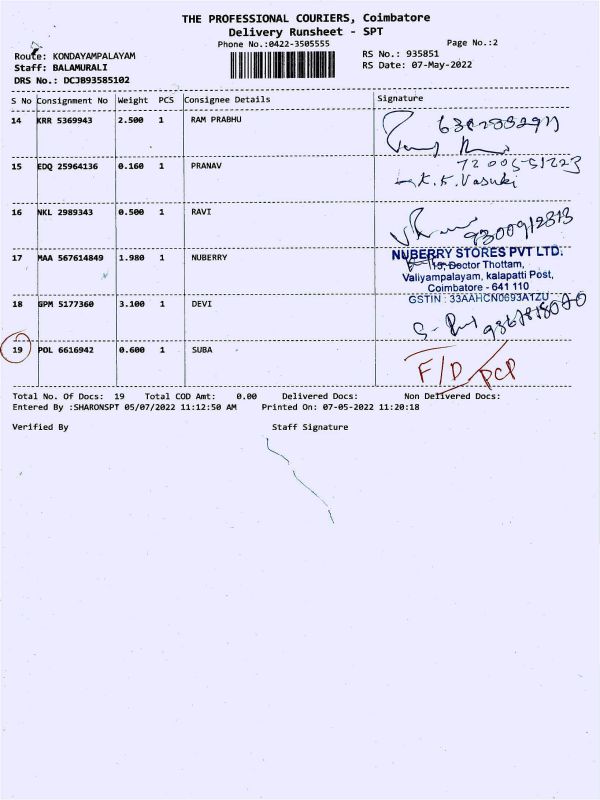 THE PROFESSIONAL COURIERS, Coimbatore
Delivery Runsheet - SPT
Phone No.:0422-3505555
Page No.:2
Route: KONDAYAMPALAYAM
RS No.: 935851
Staff: BALAMURALI
RS Date: 07-May-2022
DRS No.: DCJB93585102
S No Consignment No Weight PCS Consignee Details Signature
14 KRR 5369943 2.500 1 RAM PRABHU
15 EDQ 25964136 0.160 1 PRANAV
72005-51223
K.K. Vasuki
16 NKL 2989343 0.500 1 RAVI
9300912813
17 MAA 567614849 1.980 1 NUBERRY
NUBERRY STORES PVT LTD.
Doctor Thottam,
Valiyampalayam, kalapatti Post,
Coimbatore - 641 110
GSTIN : 33AAHCN0693A1ZU
18 GPM 5177360 3.100 1 DEVI
19 POL 6616942 0.600 1 SUBA
F/D PCP
Total No. Of Docs: 19 Total COD Amt: 0.00 Delivered Docs: Non Delivered Docs:
Entered By :SHARONSPT 05/07/2022 11:12:50 AM Printed On: 07-05-2022 11:20:18
Verified By Staff Signature